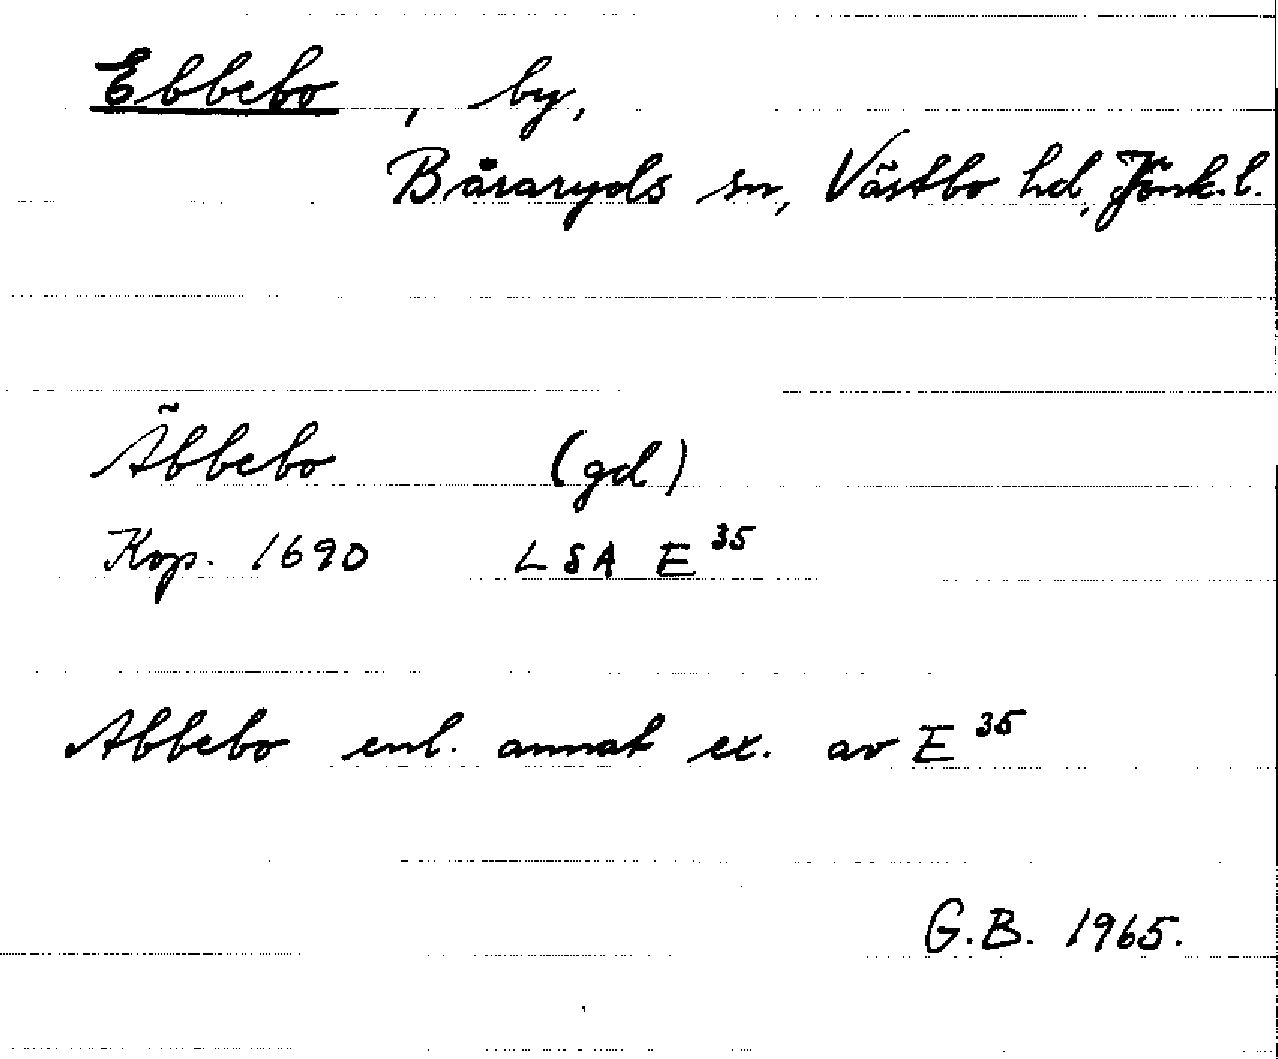 Ebbebo, by,
Båraryds sn, Västbo hd, Jönk.l.
Äbbebo (gd)
Kop. 1690 LSA E 35
Abbebo enl. annat ex. av E 35
G.B. 1965.